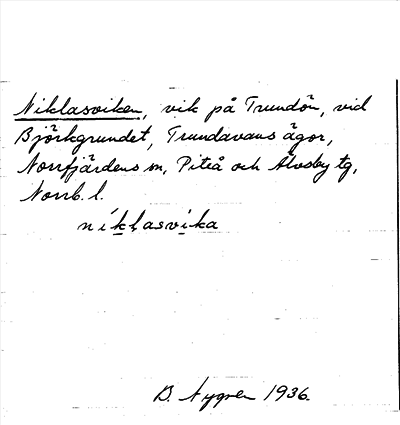 Niklasviken, vik på Trundön, vid
Björkgrundet, Trundavans ägor,
Norrfjärdens sn, Piteå och Älvsby tg,
Norrb. l.
níkḷasvika
B. Nygren 1936.